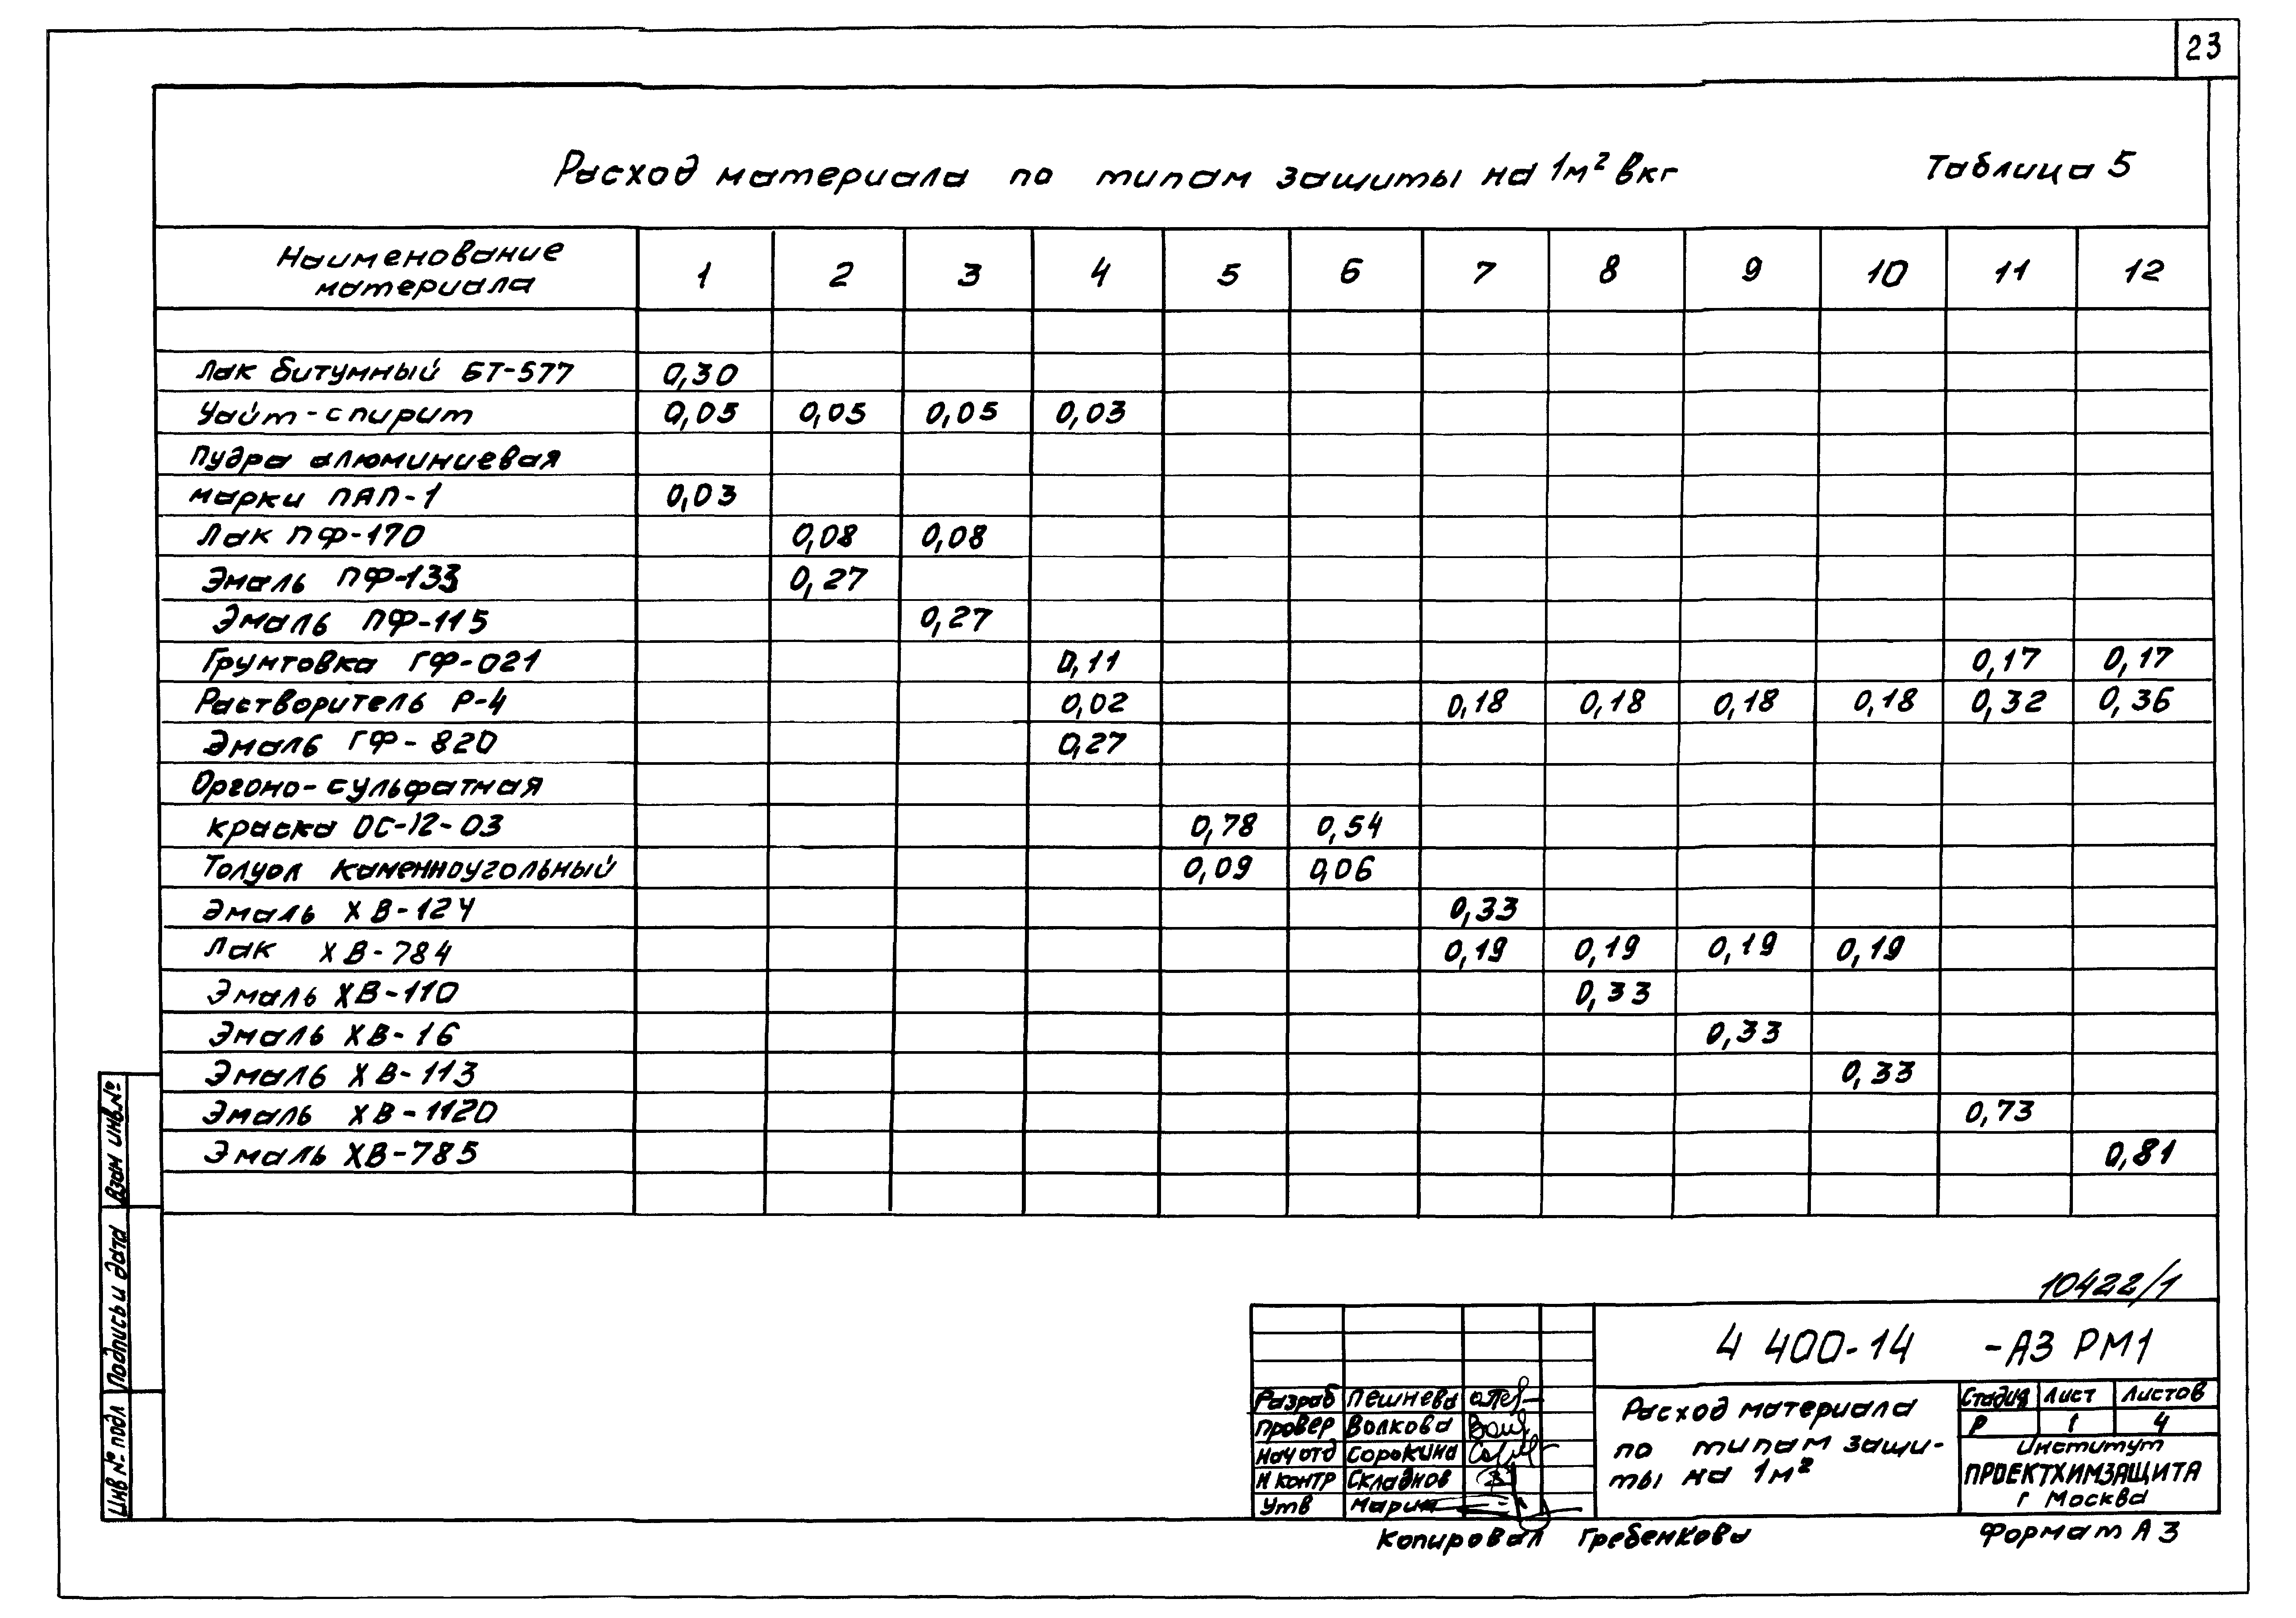 23
Расход материала по типам защиты на 1м² в кг Таблица 5
Наименование
материала 1 2 3 4 5 6 7 8 9 10 11 12
Лак битумный БТ-577 0,30
Уайт-спирит 0,05 0,05 0,05 0,03
Пудра алюминиевая
марки ПАП-1 0,03
Лак ПФ-170 0,08 0,08
Эмаль ПФ-133 0,27
Эмаль ПФ-115 0,27
Грунтовка ГФ-021 0,11 0,17 0,17
Растворитель Р-4 0,02 0,18 0,18 0,18 0,18 0,32 0,36
Эмаль ГФ-820 0,27
Оргоно-сульфатная
краска ОС-12-03 0,78 0,54
Толуол каменноугольный 0,09 0,06
Эмаль ХВ-124 0,33
Лак ХВ-784 0,19 0,19 0,19 0,19
Эмаль ХВ-110 0,33
Эмаль ХВ-16 0,33
Эмаль ХВ-113 0,33
Эмаль ХВ-1120 0,73
Эмаль ХВ-785 0,81
Взам инв.№
Подпись и дата
Инв № подл
10422/1
4 400-14 -А3 РМ1
Разраб Пешнева
Провер Волкова
Нач отд Сорокина
Н контр Складнов
Утв
Расход материала
по типам защи-
ты на 1м²
Стадия Лист Листов
Р 1 4
Институт
ПРОЕКТХИМЗАЩИТА
г Москва
Копировал Гребенкова Формат А3